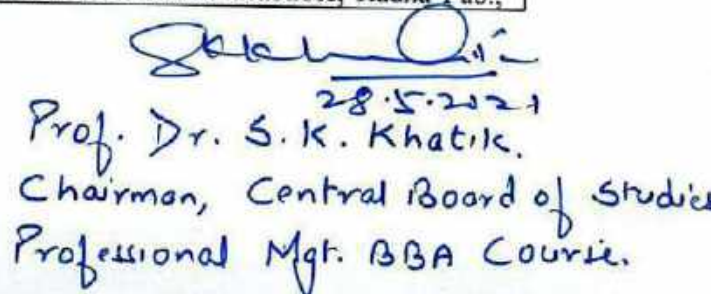 28.5.2021
Prof. Dr. S. K. Khatik.
Chairman, Central Board of Studies
Professional Mgt. BBA Course.